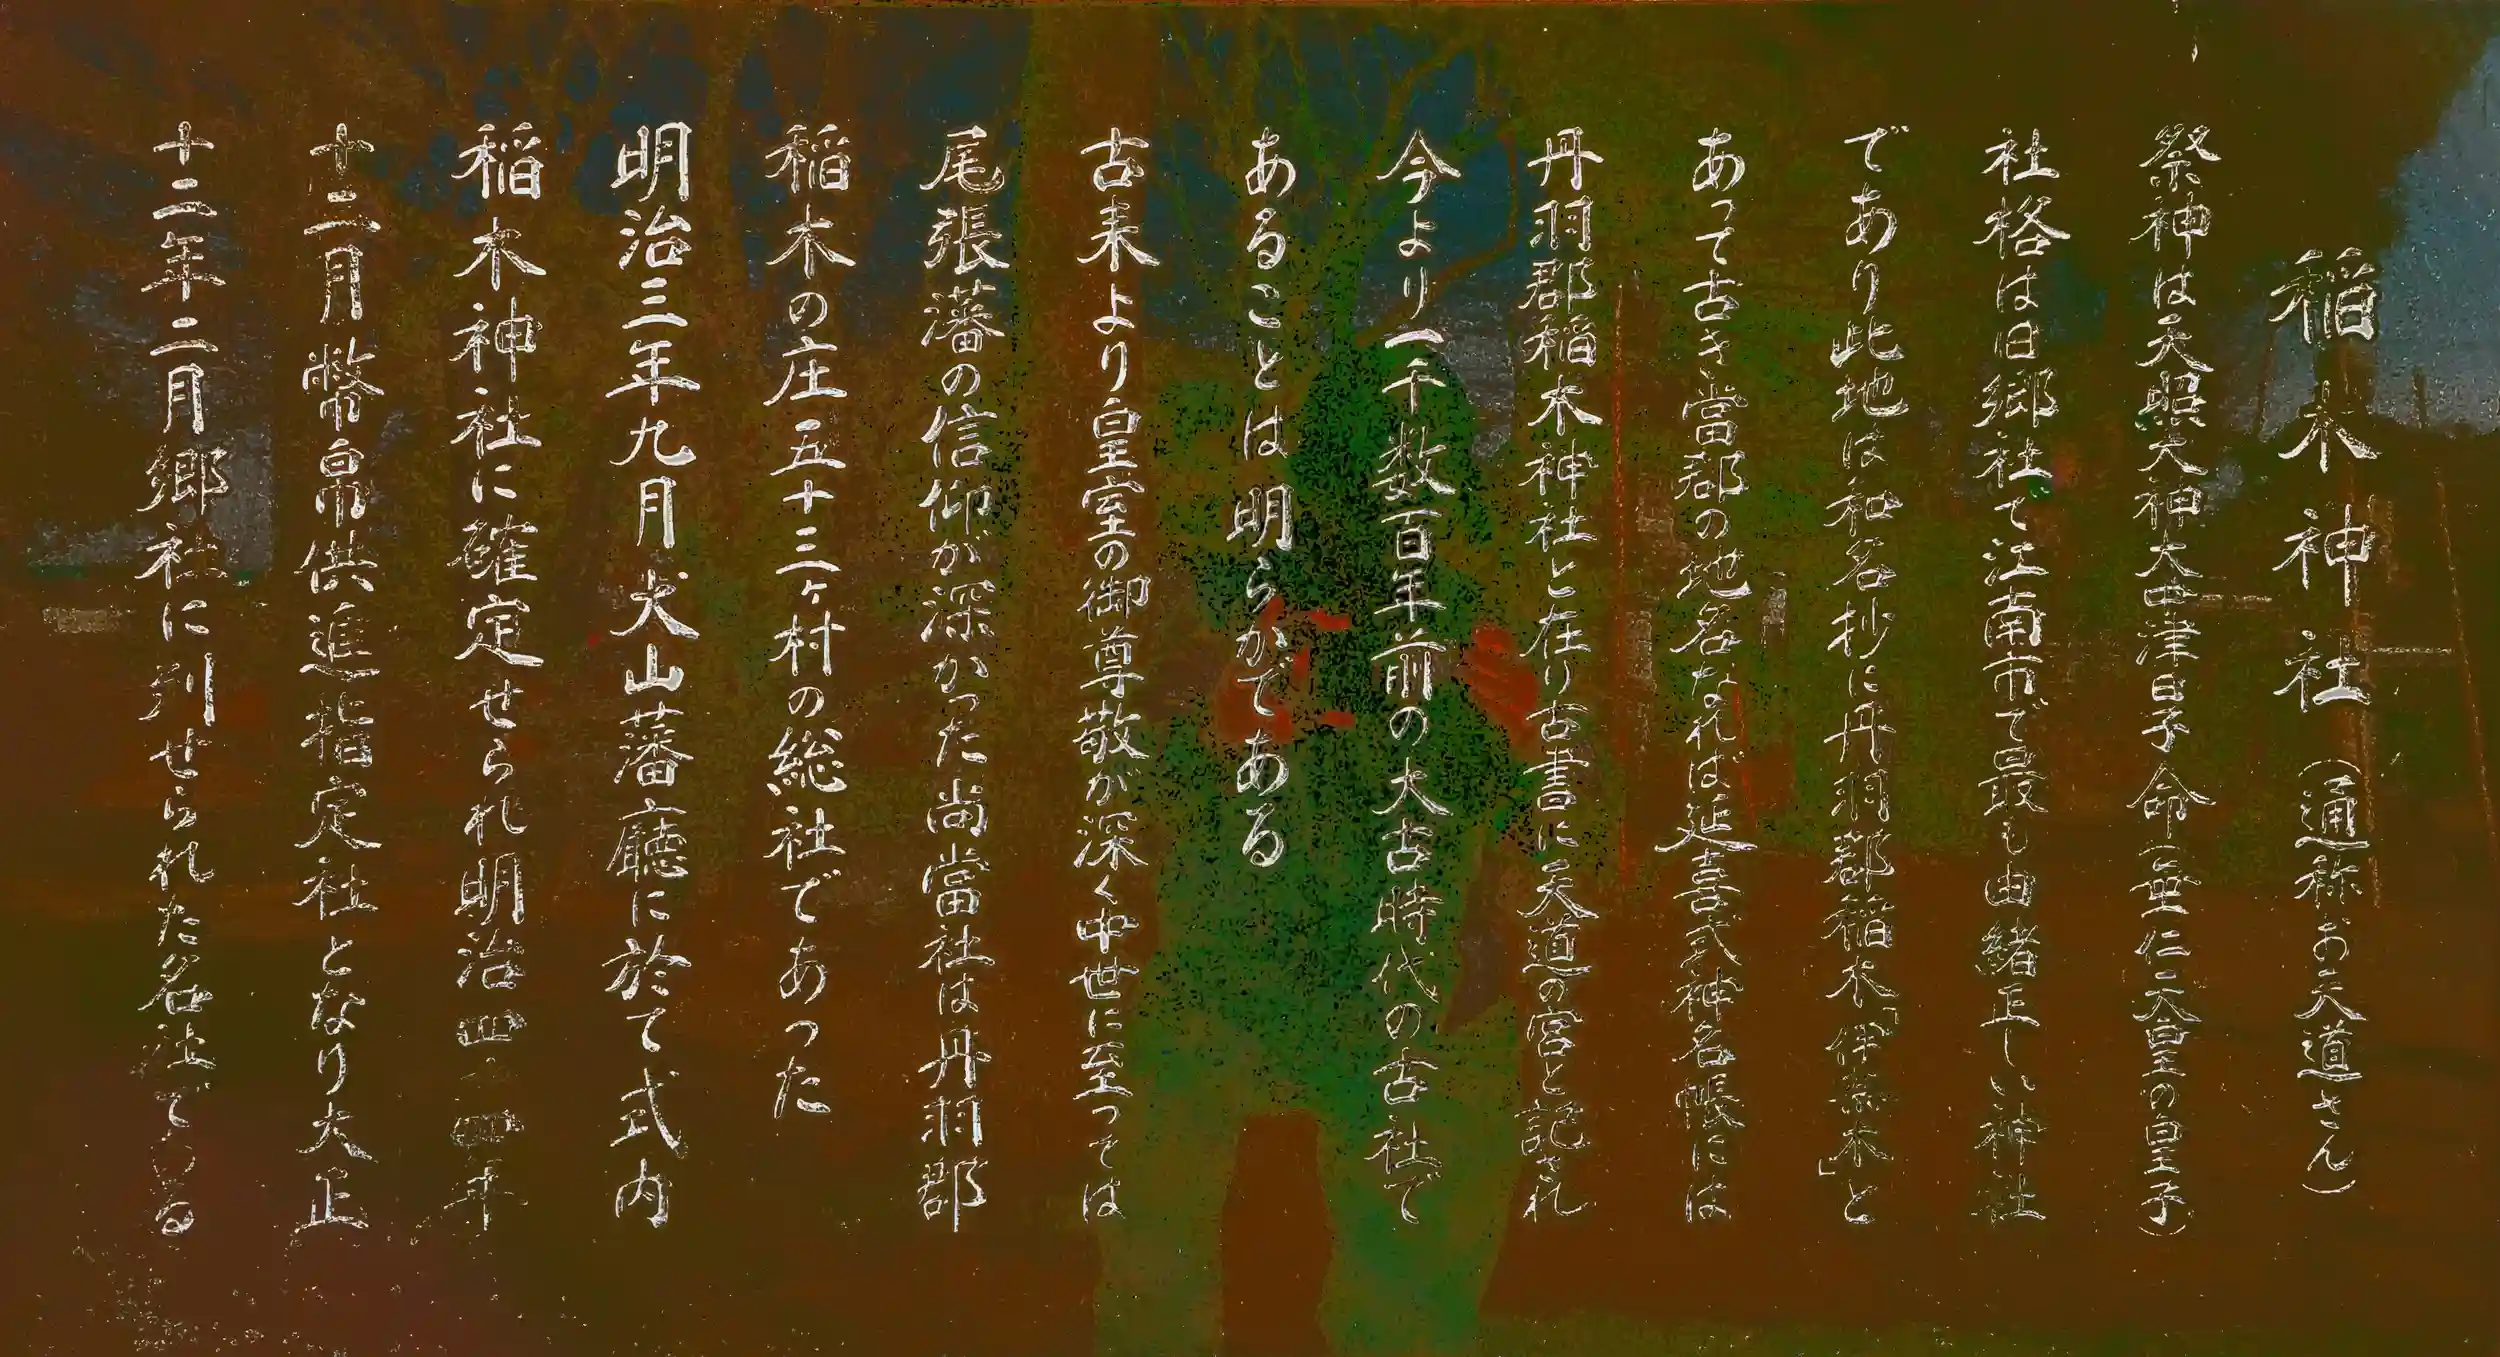 稲木神社（通称お天道さん）
祭神は天照大神大中津日子命（垂仁天皇の皇子）
社格は旧郷社て江南市で最も由緒正しい神社
であり此地は和名抄に丹羽郡稲木「伊奈木」と
あって古き當郡の地名なれば延喜式神名帳には
丹羽郡稲木神社と在り古書に天道の宮と記され
今より一千数百年前の大古時代の古社で
あることは明らかである
古来より皇室の御尊敬が深く中世に至っては
尾張藩の信仰が深かった尚當社は丹羽郡
稲木の庄五十三ヶ村の総社であった
明治三年九月犬山藩廳に於て式内
稲木神社に確定せられ明治四十四年
十二月幣帛供進指定社となり大正
十二年二月郷社に列せられた名社である